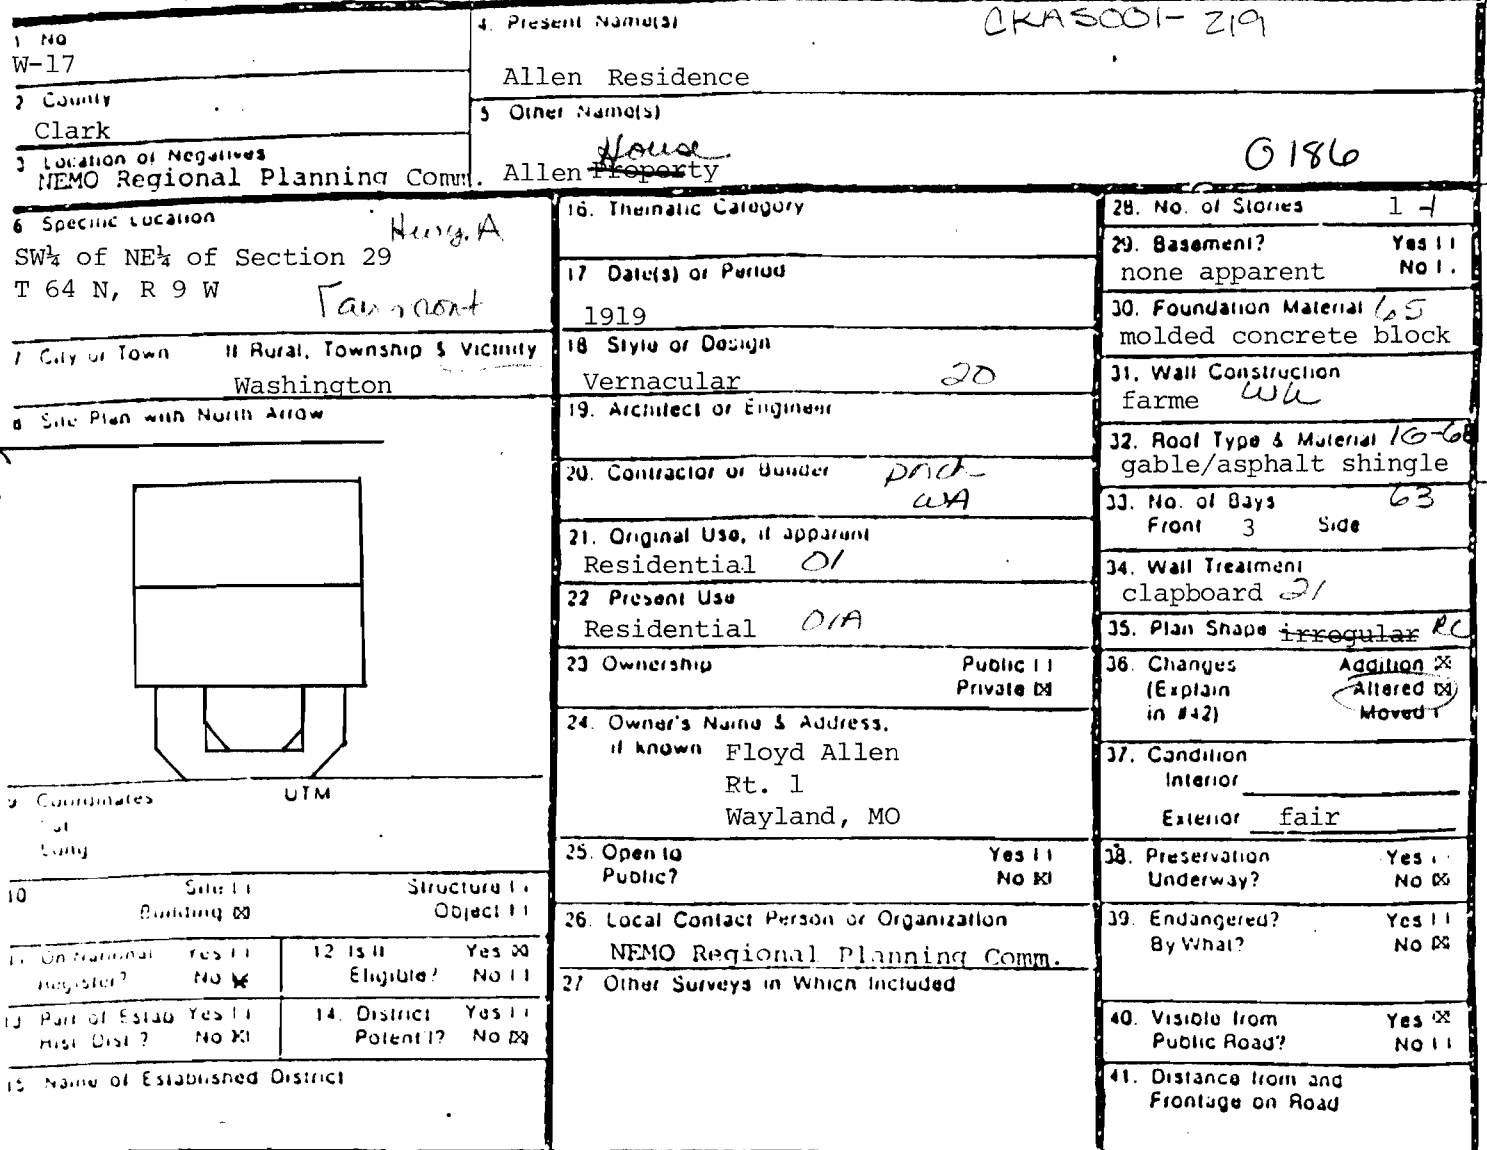 CKAS001-219
1 No
W-17
4. Present Name(s)
Allen Residence
2 County
Clark
5 Other Name(s)
House
Allen Property
0186
3 Location of Negatives
NEMO Regional Planning Comm.
6 Specific Location
SW¼ of NE¼ of Section 29
T 64 N, R 9 W
7 City or Town If Rural, Township & Vicinity
Washington
8 Site Plan with North Arrow
9 Coordinates UTM
Lat
Long
10 Site
Structure
Building ☒
Object
11 On National Register? Yes No ☒
12 Is It Eligible? Yes ☒ No
13 Part of Estab Hist Dist? Yes No ☒
14. District Potent'l? Yes No ☒
15 Name of Established District
16. Thematic Category
17 Date(s) or Period
1919
18 Style or Design
Vernacular 20
19. Architect or Engineer
20. Contractor or Builder
21. Original Use, if apparent
Residential 01
22 Present Use
Residential 01A
23 Ownership Public
Private ☒
24. Owner's Name & Address,
if known Floyd Allen
Rt. 1
Wayland, MO
25. Open to Yes
Public? No ☒
26. Local Contact Person or Organization
NEMO Regional Planning Comm.
27 Other Surveys in Which Included
28. No. of Stories 1
29. Basement? Yes
none apparent No
30. Foundation Material 65
molded concrete block
31. Wall Construction
farme
32. Roof Type & Material
gable/asphalt shingle
63
33. No. of Bays
Front 3 Side
34. Wall Treatment
clapboard 21
35. Plan Shape irregular RC
36. Changes Addition ☒
(Explain Altered ☒
in #42) Moved
37. Condition
Interior
Exterior fair
38. Preservation Yes
Underway? No ☒
39. Endangered? Yes
By What? No ☒
40. Visible from Yes ☒
Public Road? No
41. Distance from and
Frontage on Road